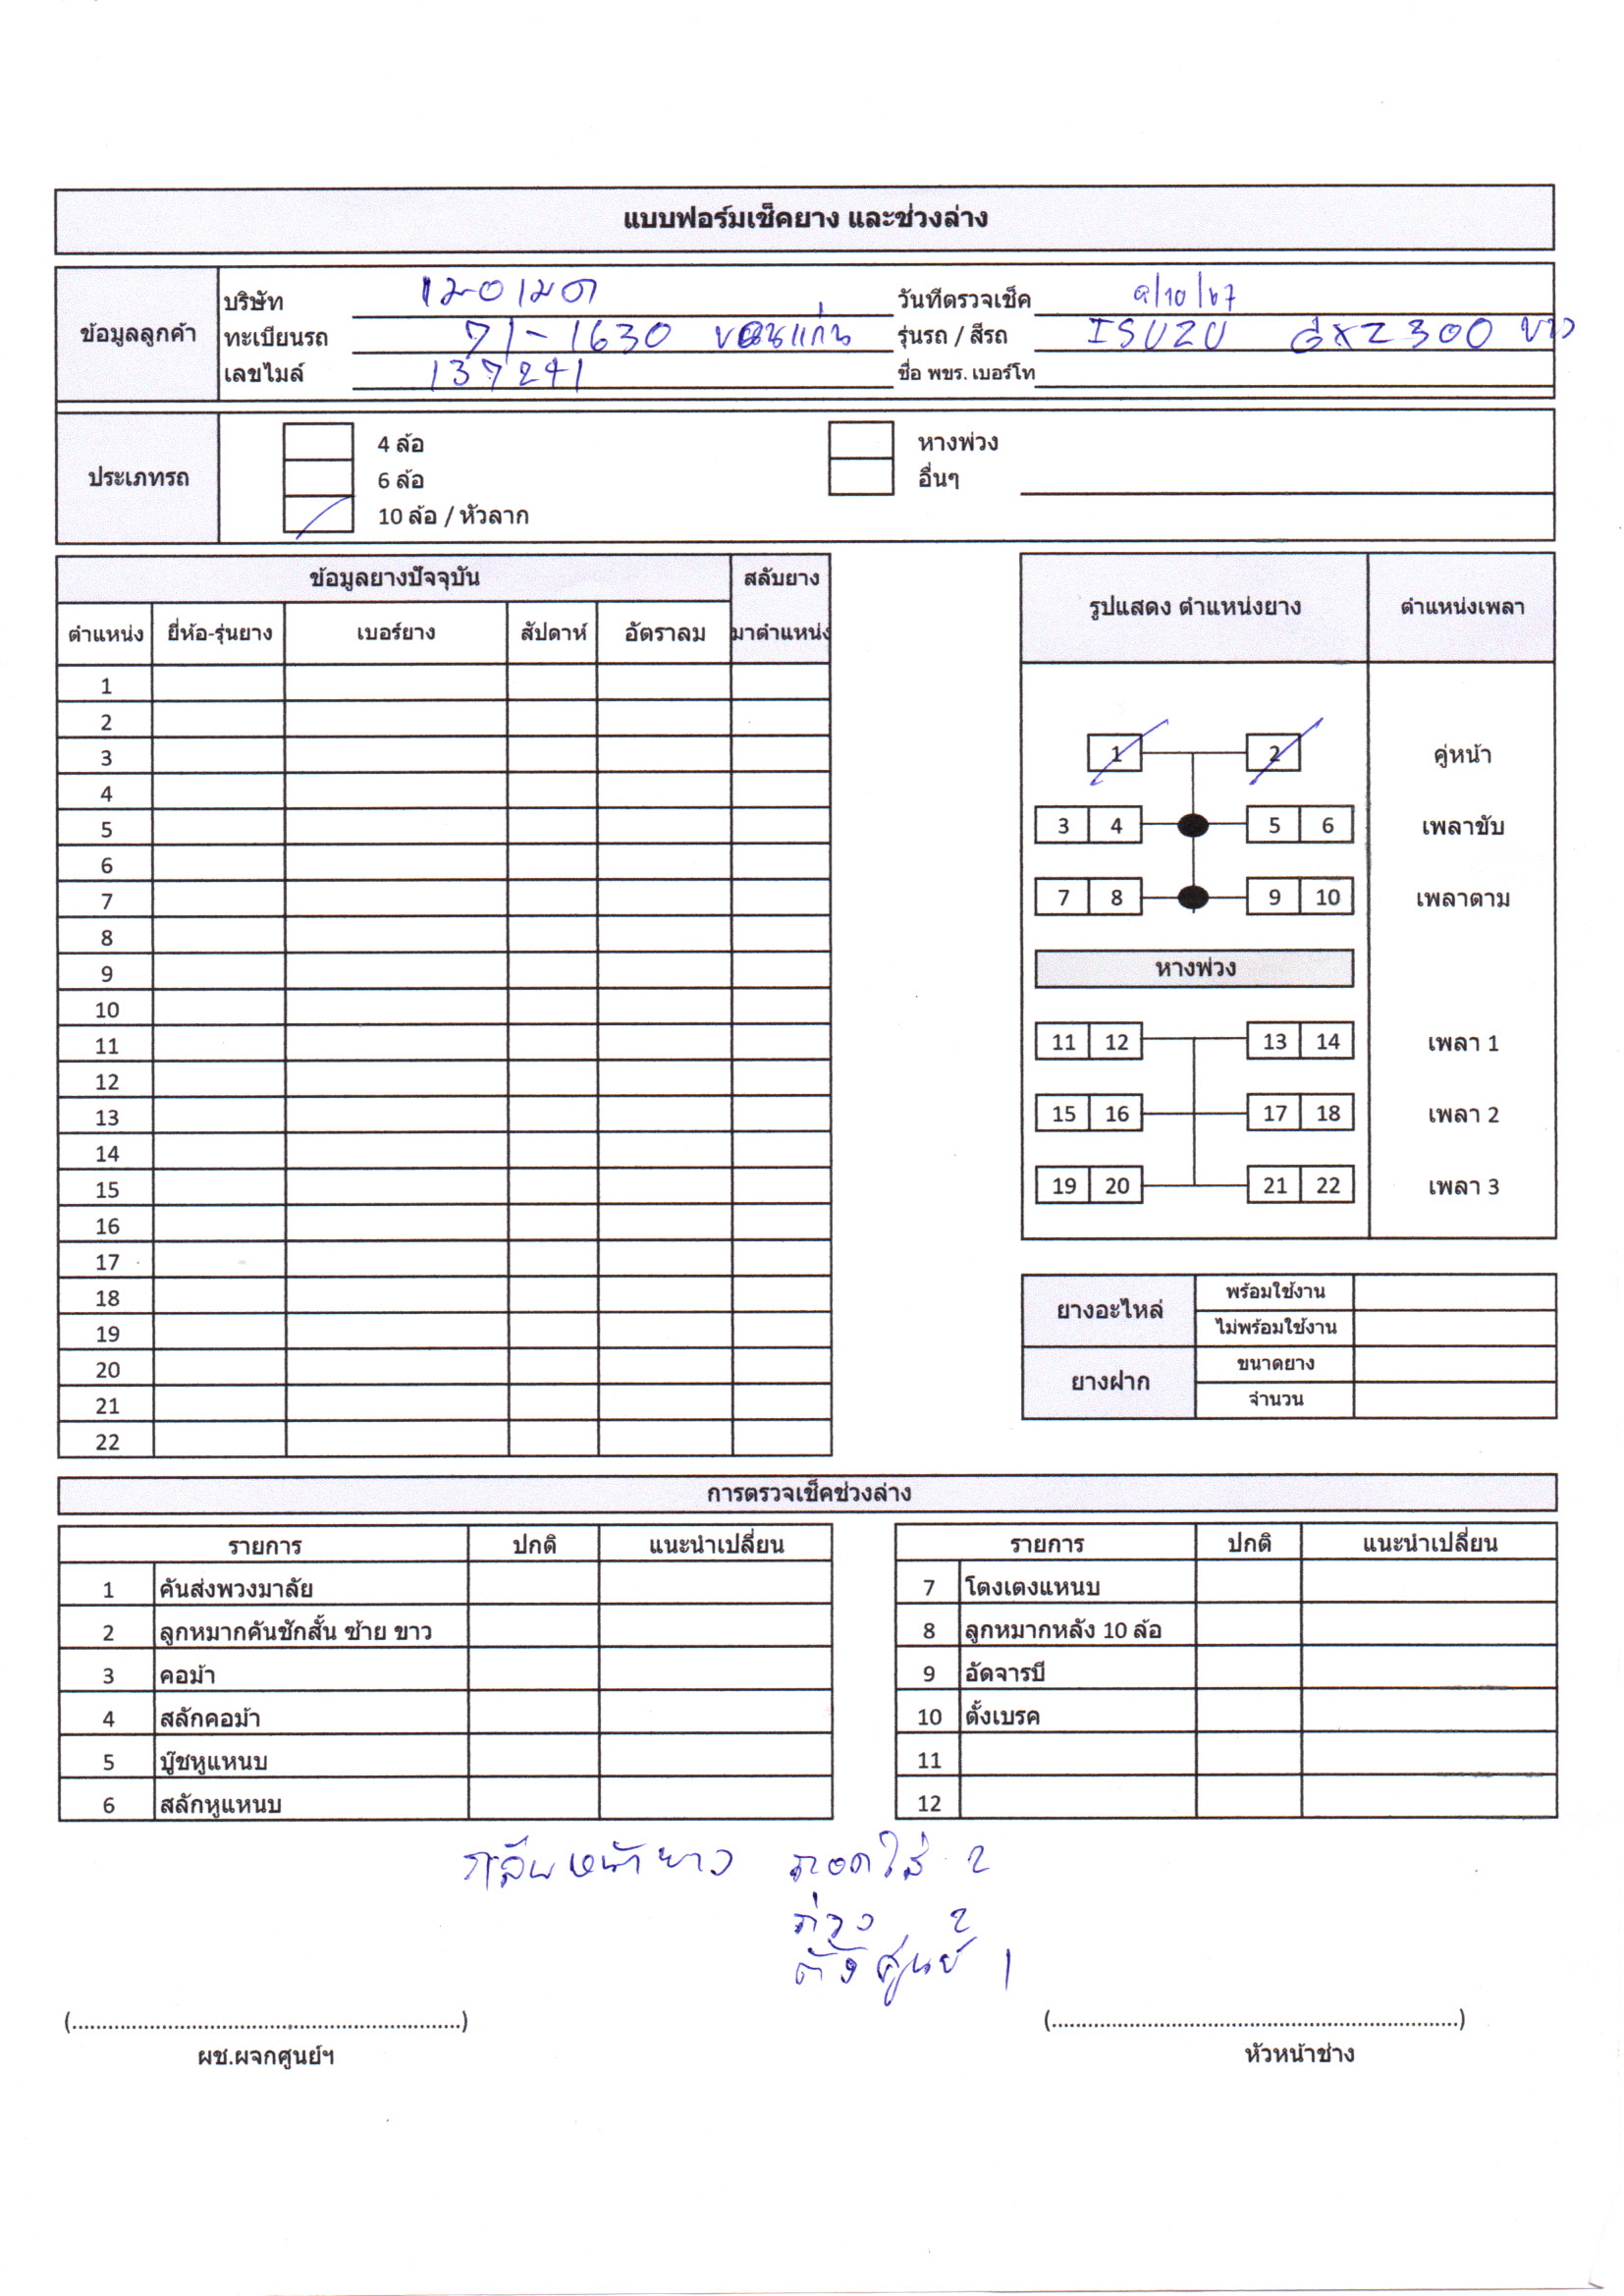 แบบฟอร์มเช็คยาง และช่วงล่าง
ข้อมูลลูกค้า
บริษัท วันที่ตรวจเช็ค 9/10/67
ทะเบียนรถ 71-1630 ขอนแก่น รุ่นรถ / สีรถ ISUZU GXZ 300 ขาว
เลขไมล์ 137241 ชื่อ พขร. เบอร์โท
ประเภทรถ
4 ล้อ หางพ่วง
6 ล้อ อื่นๆ
10 ล้อ / หัวลาก
ข้อมูลยางปัจจุบัน สลับยาง
ตำแหน่ง ยี่ห้อ-รุ่นยาง เบอร์ยาง สัปดาห์ อัตราลม มาตำแหน่ง
1
2
3
4
5
6
7
8
9
10
11
12
13
14
15
16
17
18
19
20
21
22
รูปแสดง ตำแหน่งยาง ตำแหน่งเพลา
1 2 คู่หน้า
3 4 5 6 เพลาขับ
7 8 9 10 เพลาตาม
หางพ่วง
11 12 13 14 เพลา 1
15 16 17 18 เพลา 2
19 20 21 22 เพลา 3
ยางอะไหล่ พร้อมใช้งาน
ไม่พร้อมใช้งาน
ยางฝาก ขนาดยาง
จำนวน
การตรวจเช็คช่วงล่าง
รายการ ปกติ แนะนำเปลี่ยน
1 คันส่งพวงมาลัย
2 ลูกหมากคันชักสั้น ซ้าย ขาว
3 คอม้า
4 สลักคอม้า
5 บู๊ชหูแหนบ
6 สลักหูแหนบ
รายการ ปกติ แนะนำเปลี่ยน
7 โตงเตงแหนบ
8 ลูกหมากหลัง 10 ล้อ
9 อัดจารบี
10 ตั้งเบรค
11
12
กลับหน้ายาง ถอดใส่ 2
ถ่วง 2
ตั้งศูนย์ 1
(..................................................................) (......................................................................)
ผช.ผจกศูนย์ฯ หัวหน้าช่าง